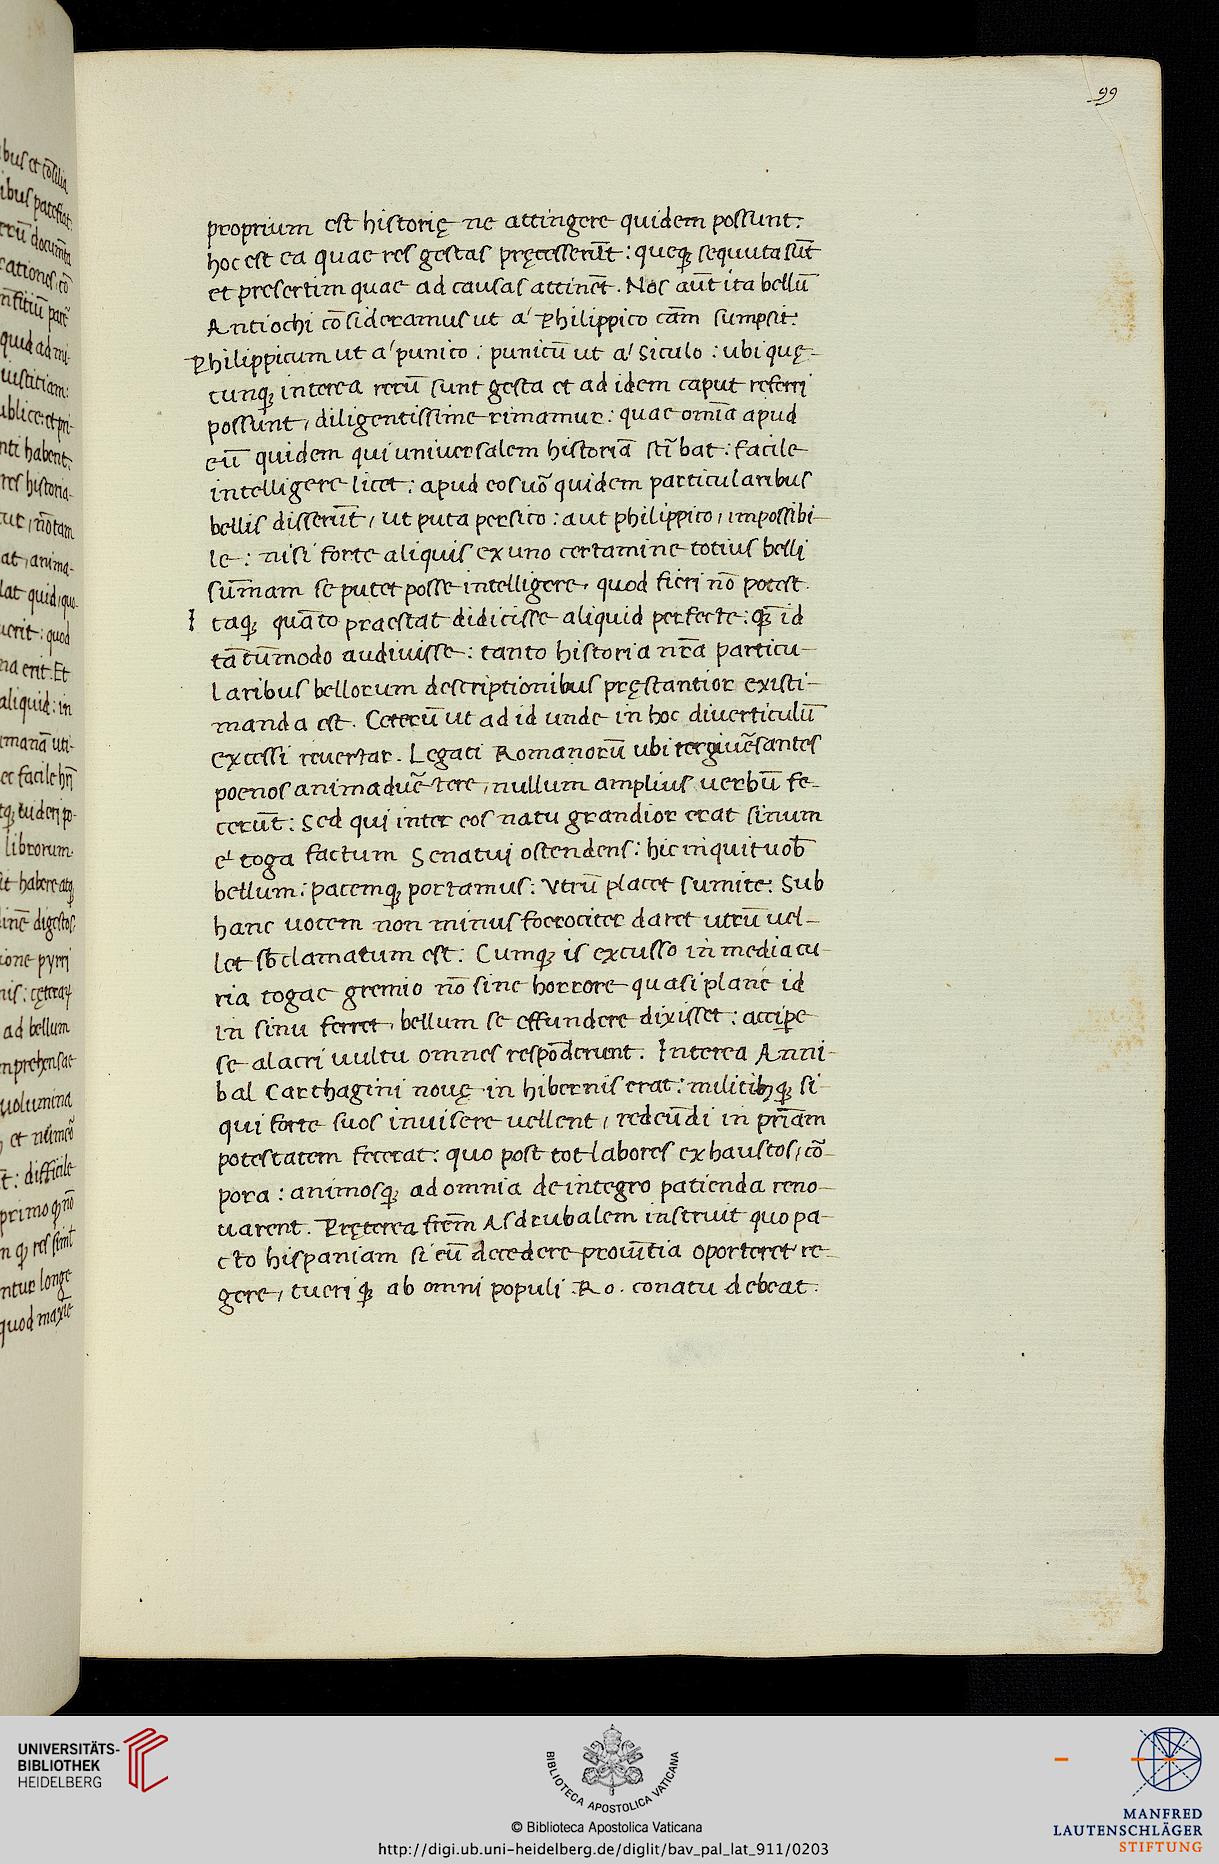 99
proprium est historię ne attingere quidem possunt:
hoc est ea quae res gestas pręcesserūt: queq; sequuta sūt
et presertim quae ad causas attinēt. Nos aūt ita bellū
Antiochi cōsideramus ut a' Philippico cām sumpsit:
Philippicum ut a' punico: punicū ut a' siculo: ubi quę-
cunq; interea rerū sunt gesta et ad idem caput referri
possunt, diligentissime rimamur: quae omīa apud
eū quidem qui universalem historiā scribat: facile
intelligere licet: apud eos uō quidem particularibus
bellis disserūt, ut puta persico: aut philippico, impossibi-
le: nisi forte aliquis ex uno certamine totius belli
sūmam se putet posse intelligere, quod fieri nō potest.
Itaq; quāto praestat didicisse aliquid perfecte: q̄ id
tātūmodo audivisse: tanto historia nr̄a particu-
laribus bellorum descriptionibus pręstantior existi-
manda est. Ceterū ut ad id unde in hoc diverticulū
excessi revertar. Legati Romanorū ubi tergiuēsantes
poenos animaduētere, nullum amplius uerbū fe-
cerūt: Sed qui inter eos natu grandior erat sinum
e' toga factum Senatui ostendens: hic inquit uob̄
bellum: pacemq; portamus: Vtrū placet sumite: Sub
hanc uocem non minus foerociter daret utrū uel-
let sb̄clamatum est: Cumq; is excusso in media cu-
ria togae gremio nō sine horrore quasi plane id
in sinu ferret, bellum se effundere dixisset: accipe
se alacri uultu omnes respōderunt. Interea Anni-
bal Carthagini nouę in hibernis erat: militibq; si
qui forte suos inuisere uellent, redeūdi in priam̄
potestatem fecerat: quo post tot labores exhaustos, cō-
pora: animosq; ad omnia de integro patienda reno-
uarent. Pręterea frēm Asdrubalem instruit quo pa-
cto hispaniam si eū decedere prouītia oporteret re-
gere, tueriq; ab omni populi .Ro. conatu debeat.
UNIVERSITÄTS-
BIBLIOTHEK
HEIDELBERG
BIBLIOTECA APOSTOLICA VATICANA
© Biblioteca Apostolica Vaticana
http://digi.ub.uni-heidelberg.de/diglit/bav_pal_lat_911/0203
MANFRED
LAUTENSCHLÄGER
STIFTUNG